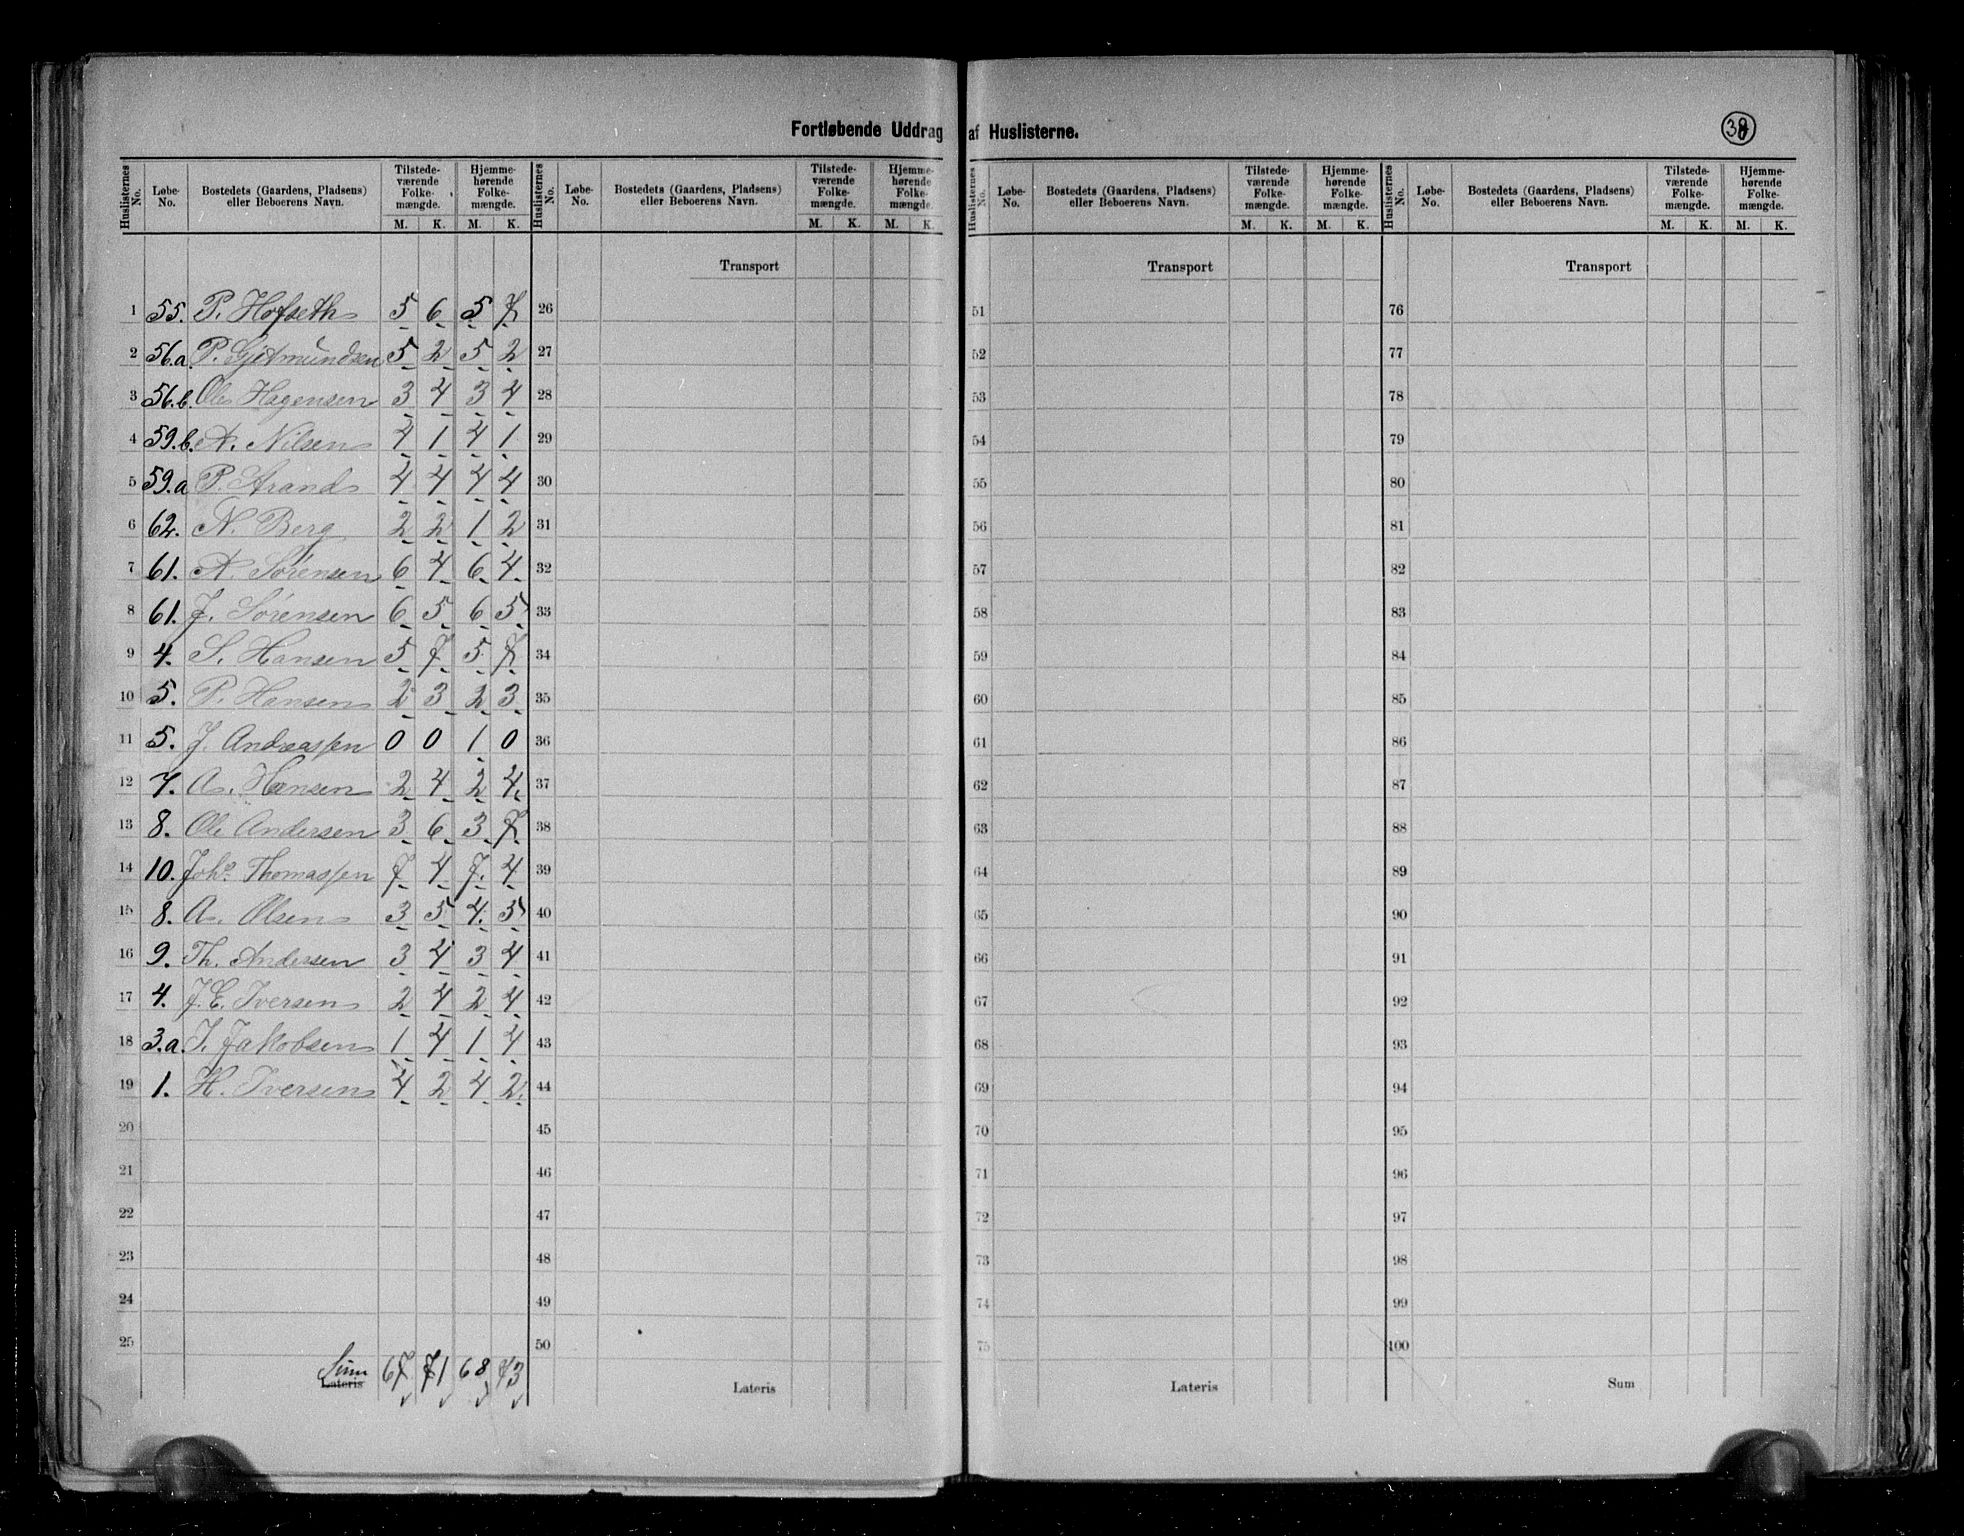 Fortløbende Uddrag af Huslisterne.
38
Huslisternes No. Løbe-No. Bostedets (Gaardens, Pladsens) eller Beboerens Navn. Tilstede-værende Folke-mængde. M. K. Hjemme-hørende Folke-mængde. M. K.
1 55. P. Hofseth 5 6 5 7
2 56.a P. Gjetmundsen 5 2 5 2
3 56.b. Ole Hagensen 3 4 3 4
4 59.b. A. Nilsen 4 1 4 1
5 59.a P. Strand 4 4 4 4
6 62. N. Berg 2 2 1 2
7 61. A. Sørensen 6 4 6 4
8 61. J. Sørensen 6 5 6 5
9 4. S. Hansen 5 7 5 7
10 5. P. Hansen 2 3 2 3
11 5. J. Andreassen 0 0 1 0
12 7. A. Hansen 2 4 2 4
13 8. Ole Andersen 3 6 3 7
14 10. Johs. Thomassen 7 4 7 4
15 8. A. Olsen 3 5 4 5
16 9. Th. Andersen 3 4 3 4
17 4. J. E. Iversen 2 4 2 4
18 3.a. I. Jakobsen 1 4 1 4
19 1. H. Iversen 4 2 4 2
20
21
22
23
24
25
Sum 67 71 68 73
Lateris
Huslisternes No. Løbe-No. Bostedets (Gaardens, Pladsens) eller Beboerens Navn. Tilstede-værende Folke-mængde. M. K. Hjemme-hørende Folke-mængde. M. K.
Transport
26
27
28
29
30
31
32
33
34
35
36
37
38
39
40
41
42
43
44
45
46
47
48
49
50
Lateris
Huslisternes No. Løbe-No. Bostedets (Gaardens, Pladsens) eller Beboerens Navn. Tilstede-værende Folke-mængde. M. K. Hjemme-hørende Folke-mængde. M. K.
Transport
51
52
53
54
55
56
57
58
59
60
61
62
63
64
65
66
67
68
69
70
71
72
73
74
75
Lateris
Huslisternes No. Løbe-No. Bostedets (Gaardens, Pladsens) eller Beboerens Navn. Tilstede-værende Folke-mængde. M. K. Hjemme-hørende Folke-mængde. M. K.
Transport
76
77
78
79
80
81
82
83
84
85
86
87
88
89
90
91
92
93
94
95
96
97
98
99
100
Sum